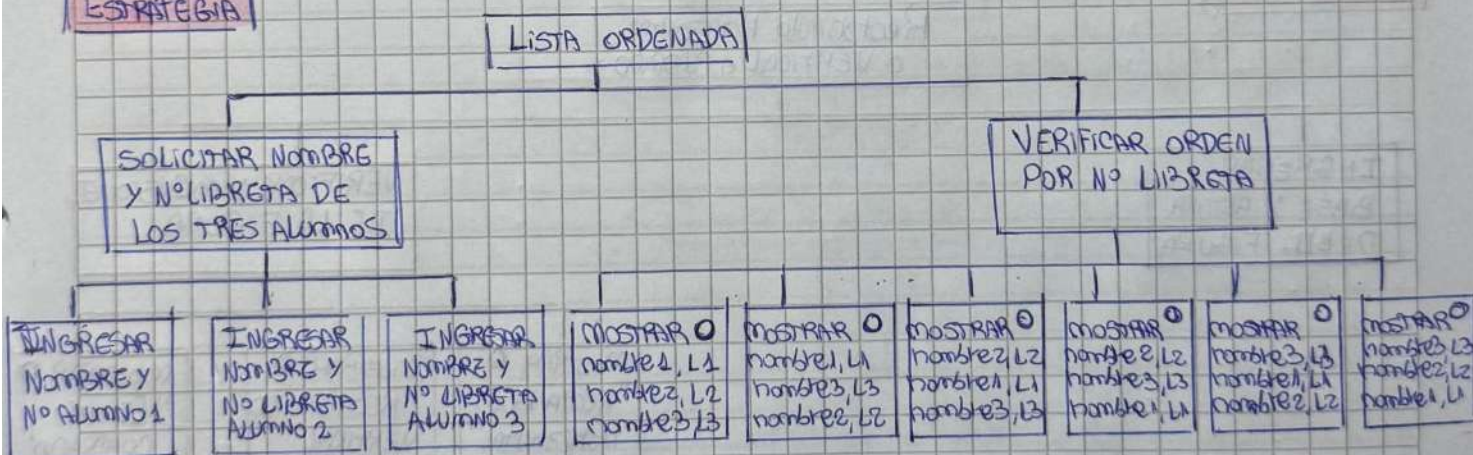 ESTRATEGIA
LISTA ORDENADA
SOLICITAR NOMBRE
Y Nº LIBRETA DE
LOS TRES ALUMNOS
VERIFICAR ORDEN
POR Nº LIIBRETA
INGRESAR
NOMBRE Y
Nº ALUMNO 1
INGRESAR
NOMBRE Y
Nº LIBRETA
ALUMNO 2
INGRESAR
NOMBRE Y
Nº LIBRETA
ALUMNO 3
MOSTRAR O
nombre1, L1
nombre2, L2
nombre3, L3
MOSTRAR O
nombre1, L1
nombre3, L3
nombre2, L2
MOSTRAR O
nombre2, L2
nombre1, L1
nombre3, L3
MOSTRAR O
nombre2, L2
nombre3, L3
nombre1, L1
MOSTRAR O
nombre3, L3
nombre1, L1
nombre2, L2
MOSTRAR O
nombre3, L3
nombre2, L2
nombre1, L1